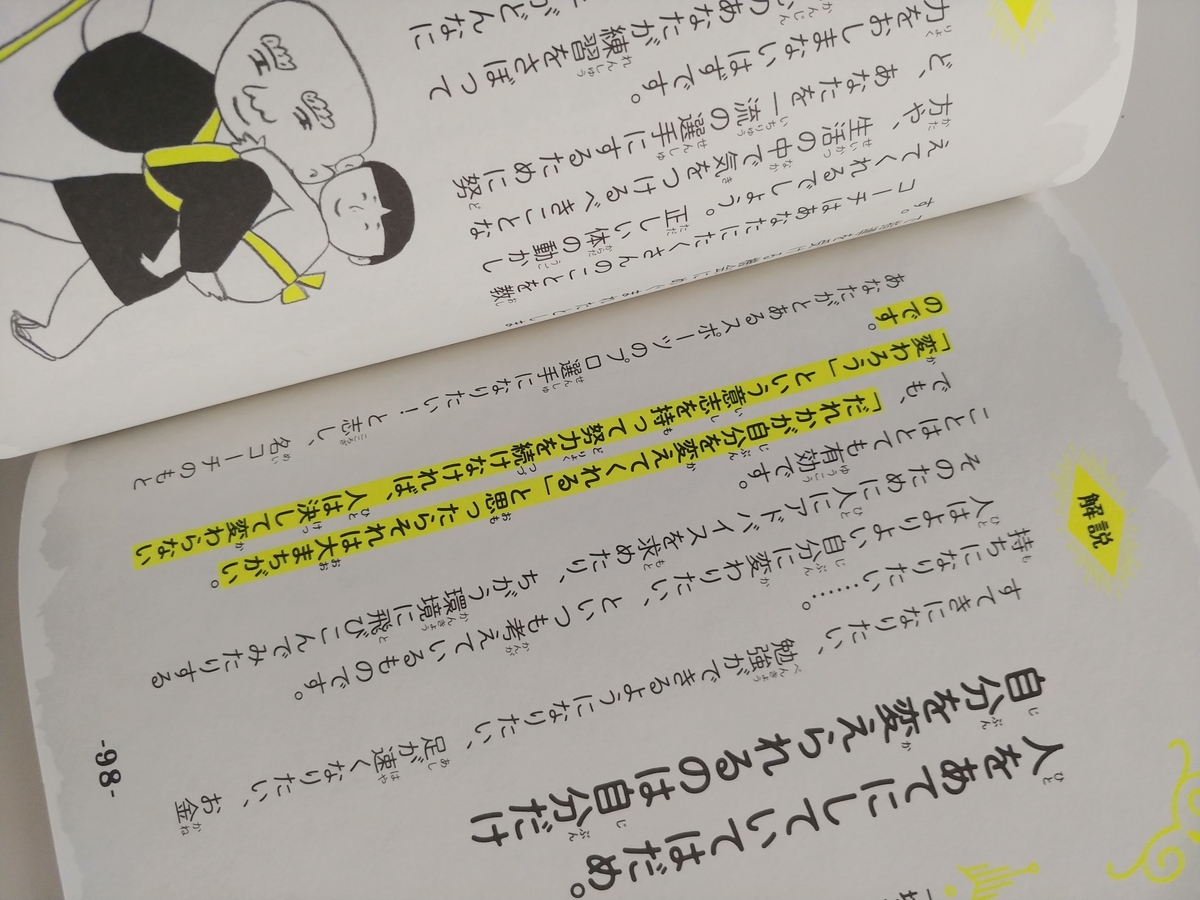 人をあてにしていてはだめ。
自分を変えられるのは自分だけ
解説
すてきになりたい、勉強ができるようになりたい、足が速くなりたい、お金
持ちになりたい……。
人はよりよい自分に変わりたい、といつも考えているものです。
そのために人にアドバイスを求めたり、ちがう環境に飛びこんでみたりする
ことはとても有効です。
でも、「だれかが自分を変えてくれる」と思ったらそれは大まちがい。
「変わろう」という意志を持って努力を続けなければ、人は決して変わらない
のです。
あなたがとあるスポーツのプロ選手になりたい！と志し、名コーチのもと
-98-
す。
コーチはあなたにたくさんのことを教
えてくれるでしょう。正しい体の動かし
方や、生活の中で気をつけるべきことな
ど、あなたを一流の選手にするために努
力をおしまないはずです。
のあなたが練習をさぼって
がどんなに